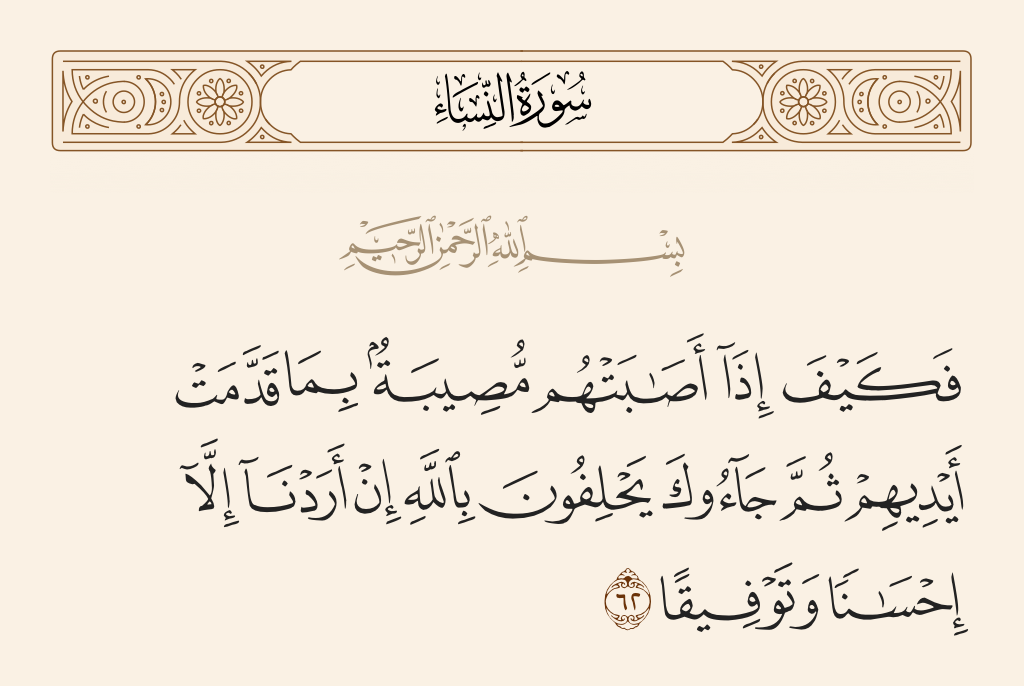 سُورَةُ النِّسَاءِ
بِسْمِ ٱللَّهِ ٱلرَّحْمَٰنِ ٱلرَّحِيمِ
فَكَيْفَ إِذَآ أَصَٰبَتْهُم مُّصِيبَةٌۢ بِمَا قَدَّمَتْ
أَيْدِيهِمْ ثُمَّ جَآءُوكَ يَحْلِفُونَ بِٱللَّهِ إِنْ أَرَدْنَآ إِلَّآ
إِحْسَٰنًا وَتَوْفِيقًا ٦٢